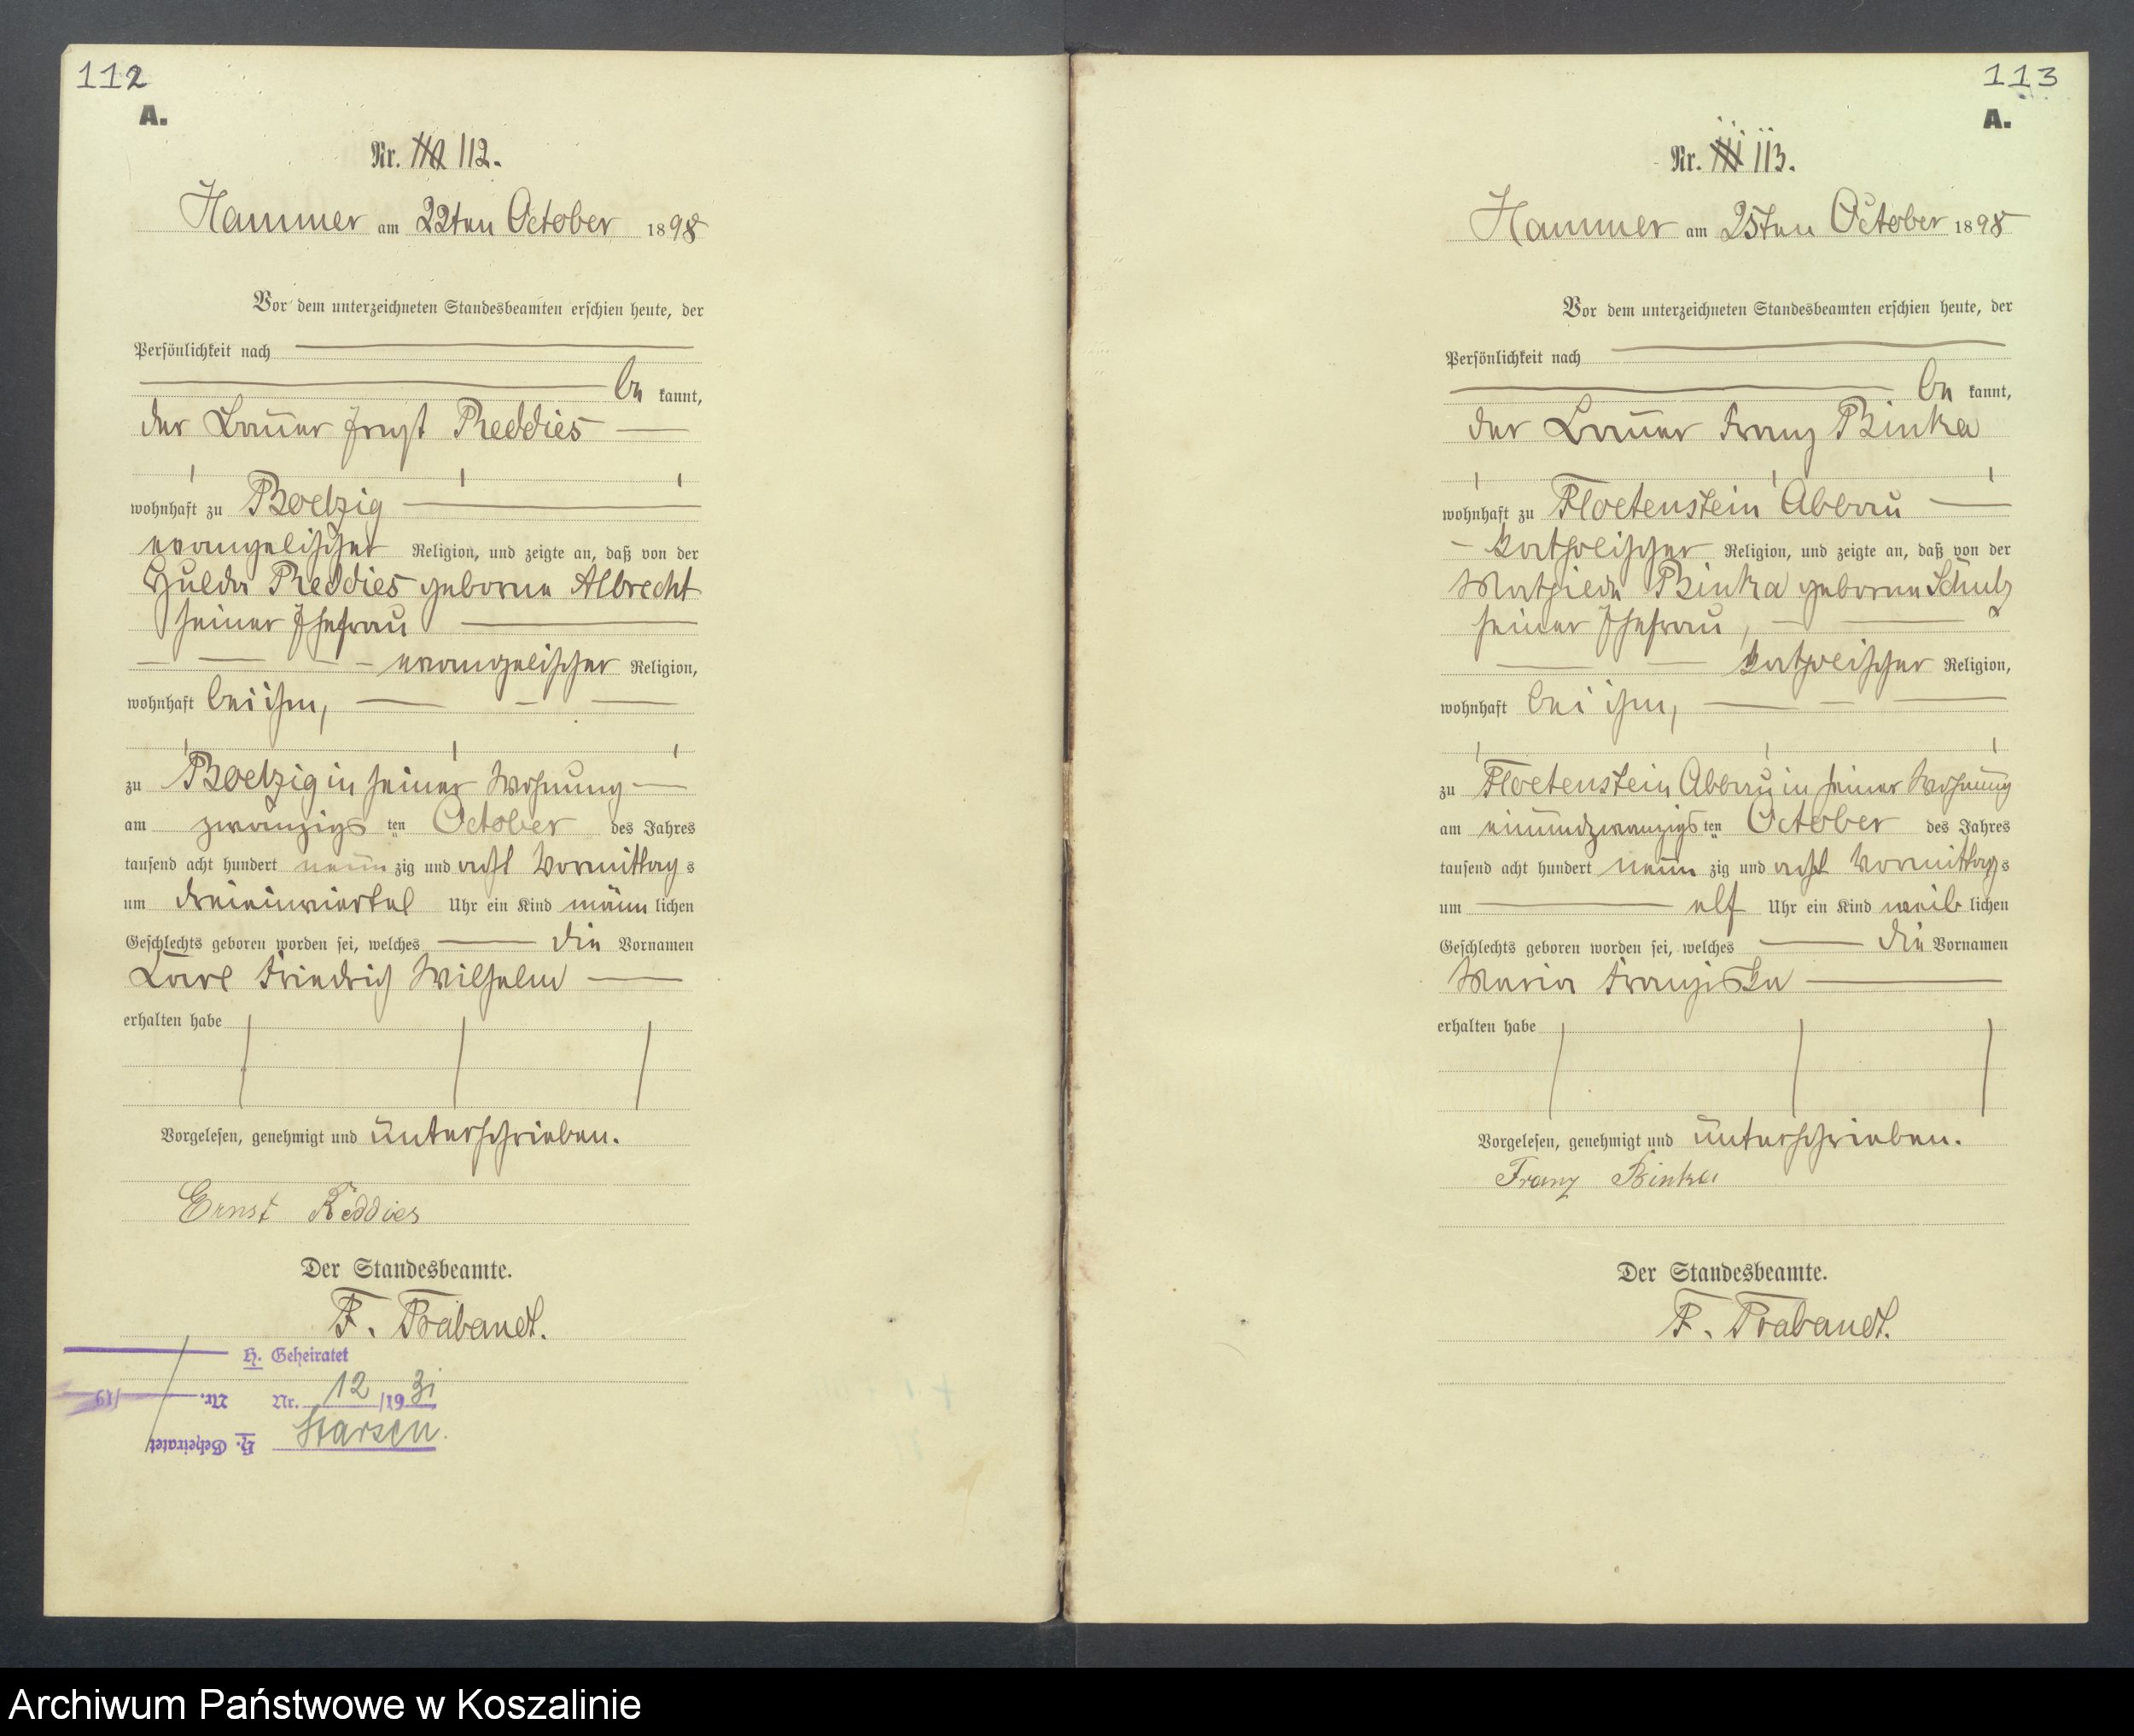 112
A.
Nr. 110 112.
Hammer am 22ten October 1898
Vor dem unterzeichneten Standesbeamten erschien heute, der
Persönlichkeit nach
be kannt,
der Bauer Ernst Reddies
wohnhaft zu Boelzig
evangelischer Religion, und zeigte an, daß von der
Hulda Reddies geborne Albrecht
seiner Ehefrau
evangelischer Religion,
wohnhaft bei ihm,
zu Boelzig in seiner Wohnung
am zwanzigs ten October des Jahres
tausend acht hundert neun zig und acht Vormittag s
um dreieinviertel Uhr ein Kind männ lichen
Geschlechts geboren worden sei, welches die Vornamen
Carl Friedrich Wilhelm
erhalten habe
Vorgelesen, genehmigt und unterschrieben.
Ernst Reddies
Der Standesbeamte.
F. Brabandt.
H. Geheiratet
Nr. 12 /19 31
Starsen.
H. Geheiratet
Nr. /19
113
A.
Nr. 111 113.
Hammer am 25ten October 1898
Vor dem unterzeichneten Standesbeamten erschien heute, der
Persönlichkeit nach
be kannt,
der Bauer Franz Binka
wohnhaft zu Floetenstein Abbau
katholischer Religion, und zeigte an, daß von der
Mathilde Binka geborne Schulz
seiner Ehefrau,
katholischer Religion,
wohnhaft bei ihm,
zu Floetenstein Abbau in seiner Wohnung
am einundzwanzigs ten October des Jahres
tausend acht hundert neun zig und acht Vormittag s
um elf Uhr ein Kind weib lichen
Geschlechts geboren worden sei, welches die Vornamen
Maria Franziska
erhalten habe
Vorgelesen, genehmigt und unterschrieben.
Franz Binka
Der Standesbeamte.
F. Brabandt.
Archiwum Państwowe w Koszalinie